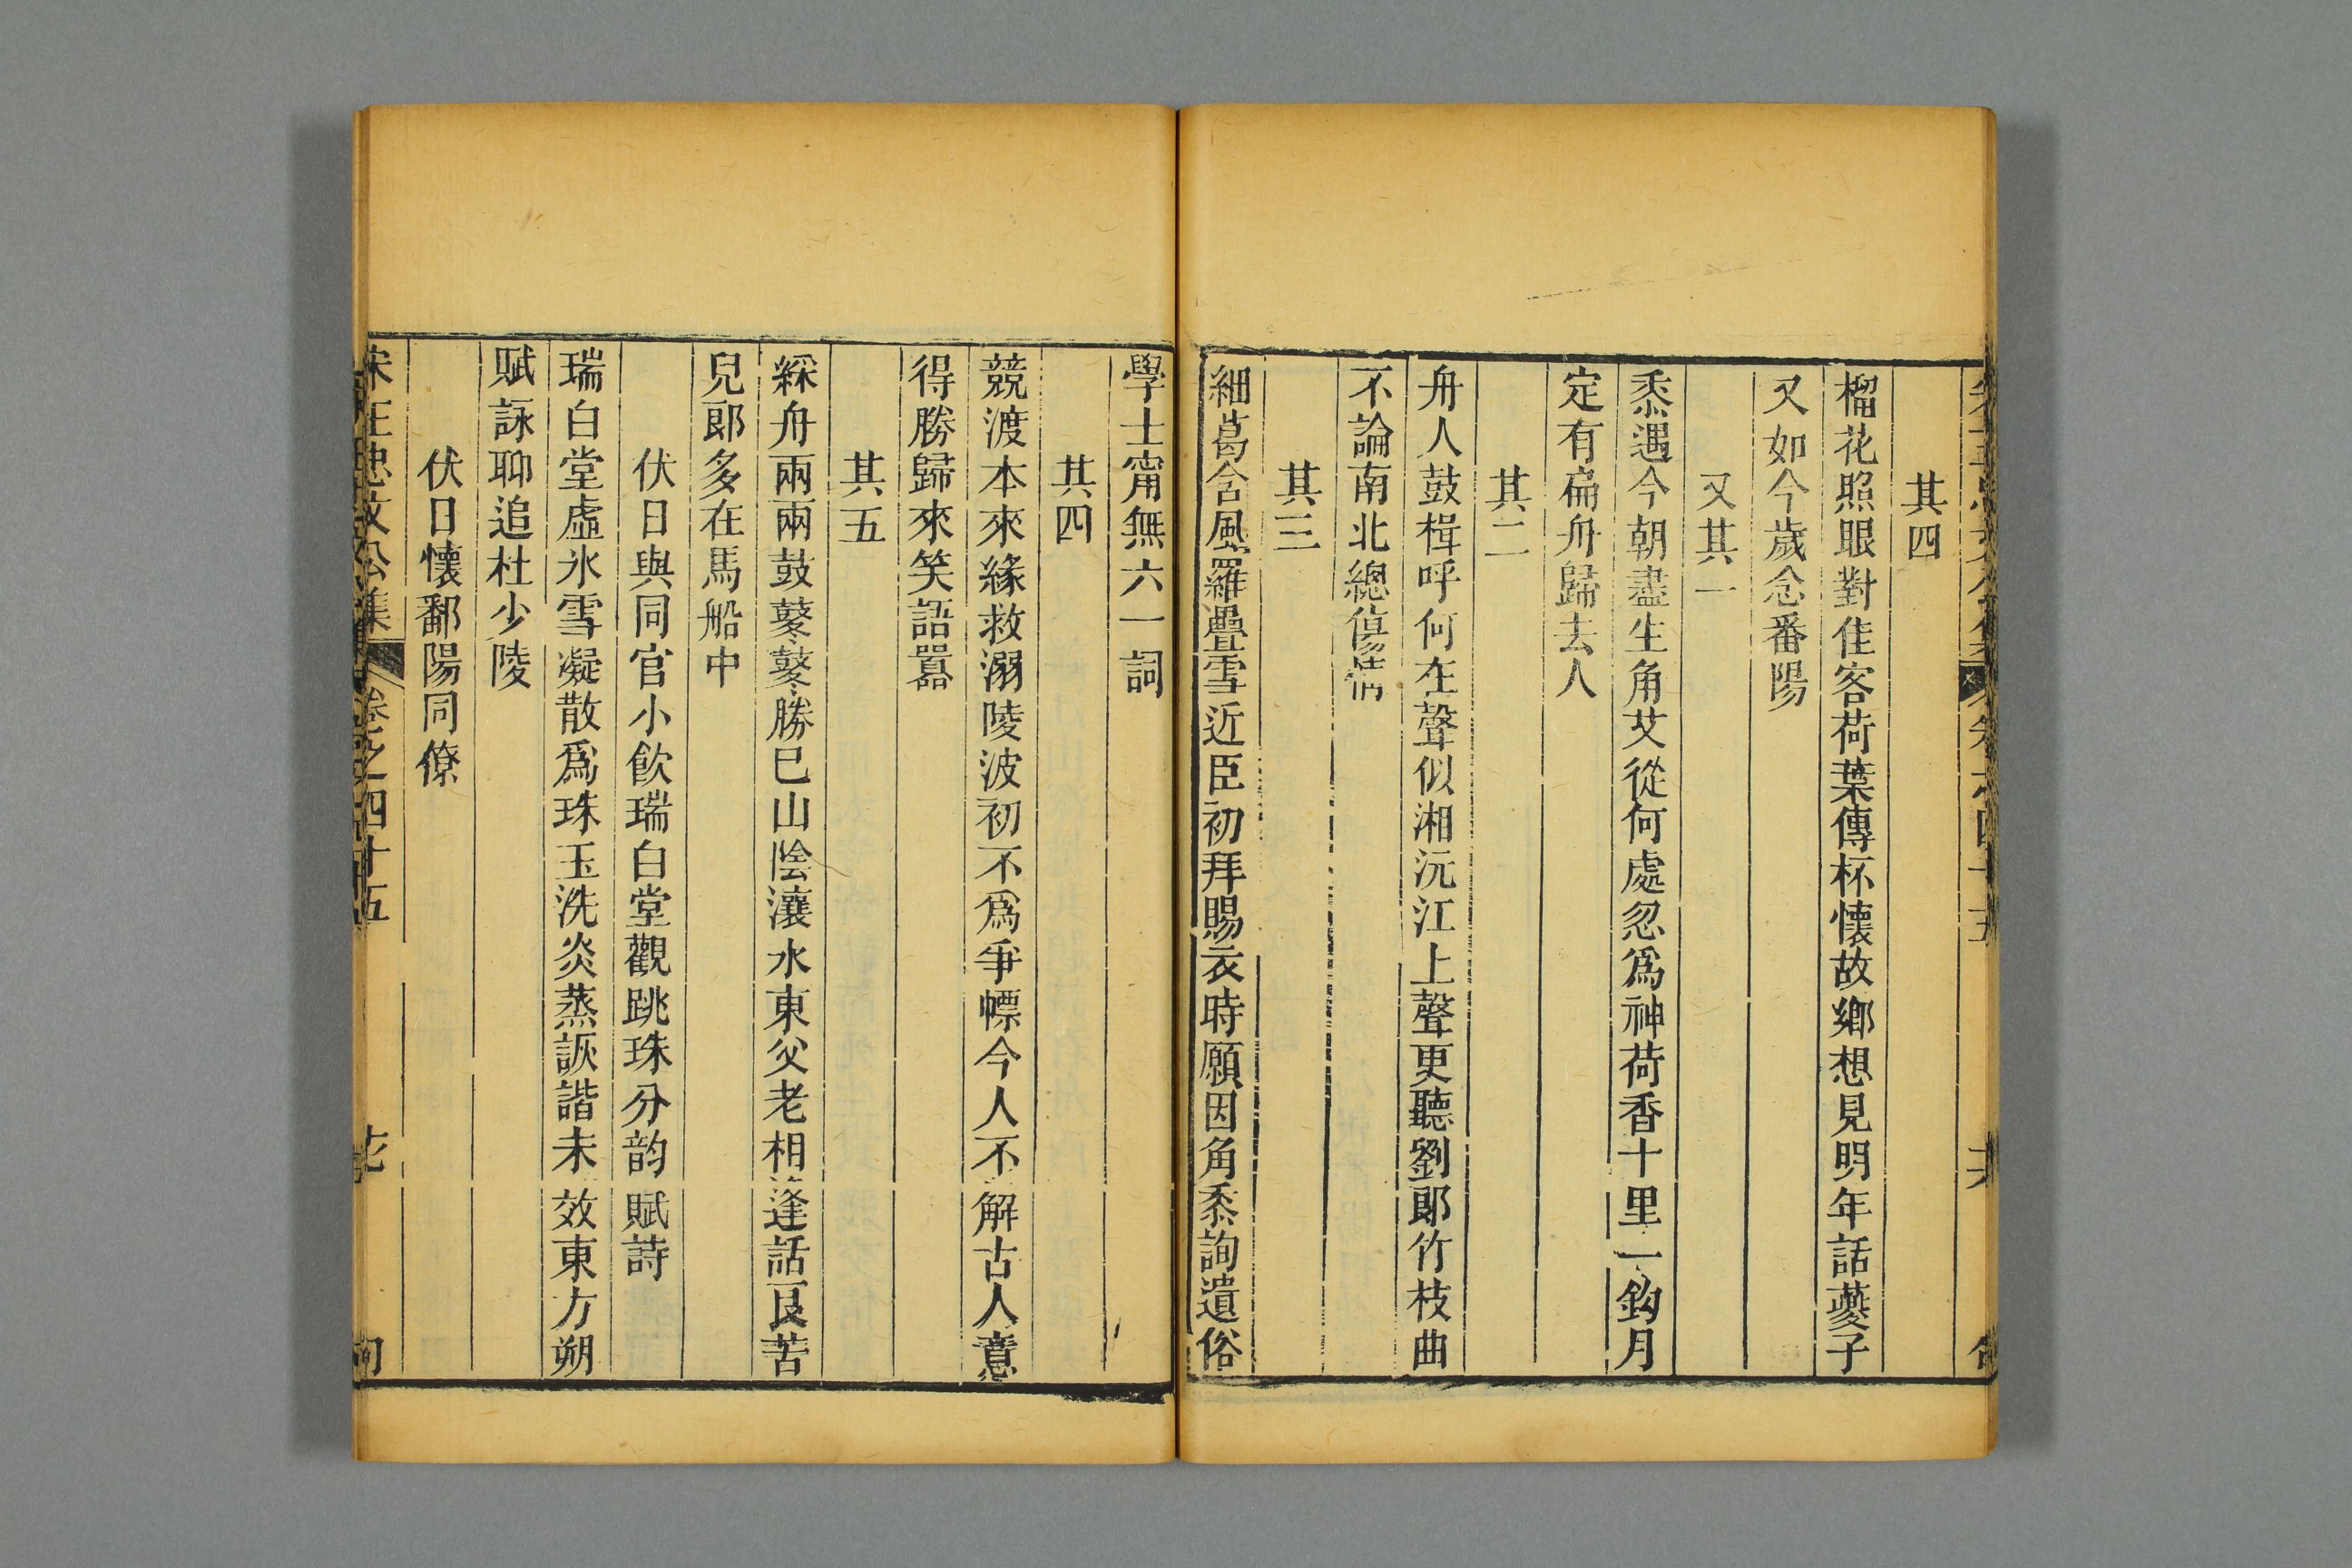 其四
榴花照眼對佳客荷葉傳杯懷故鄉想見明年話夔子
又如今歲念番陽
又其一
黍遇今朝盡生角艾從何處忽爲神荷香十里一鈎月
定有扁舟歸去人
其二
舟人鼓楫呼何在聲似湘沅江上聲更聽劉郞竹枝曲
不論南北總傷情
其三
細葛含風羅疊雪近臣初拜賜衣時願因角黍詢遺俗
學士甯無六一詞
其四
競渡本來緣救溺陵波初不爲爭幖今人不解古人意
得勝歸來笑語嚣
其五
綵舟兩兩鼓鼕鼕勝巳山陰瀼水東父老相逢話艮苦
兒郞多在馬船中
伏日與同官小飮瑞白堂觀跳珠分韵賦詩
瑞白堂虛氷雪凝散爲珠玉洗炎蒸詼諧未效東方朔
賦詠聊追杜少陵
伏日懷鄱陽同僚
宋汪忠文公集 卷之四十五